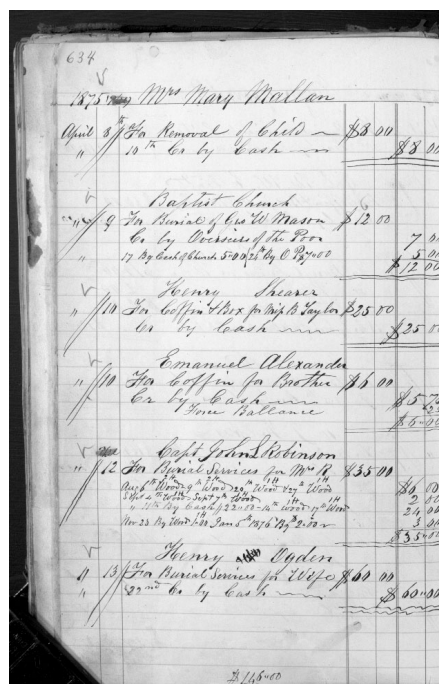 634
1875 Mrs Mary Mallan
April 8th For Removal of Child $8 00
" 10th Cr by Cash $8 00
Baptist Church
" 9 For Burial of Geo W. Mason $12 00
Cr by Overseers of the Poor 7 00
" 17 By Cash of Church 5=00 5 00
$12 00
Henry Shearer
" 10 For Coffin & Box for Taylor $25 00
Cr by Cash $25 00
Emanuel Alexander
" 10 For Coffin for Brother $6 00
Cr by Cash $5 75
Ballance 25
$6=00
Capt John S Robinson
" 12 For Burial Services for Mrs R. $35 00
Aug 6th Wood 9th Wood 20th Wood & 27th Wood
Sept 4th Wood Sept 7th Wood
" By Cash $22=00 14th Wood 17th Wood 24 00
Nov 23 By Wood Jan 5th 1876 By 2=00 3 00
$35=00
Henry Ogden
" 13 For Burial Services for Wife $60 00
" 22nd Cr by Cash $60=00
$146=00